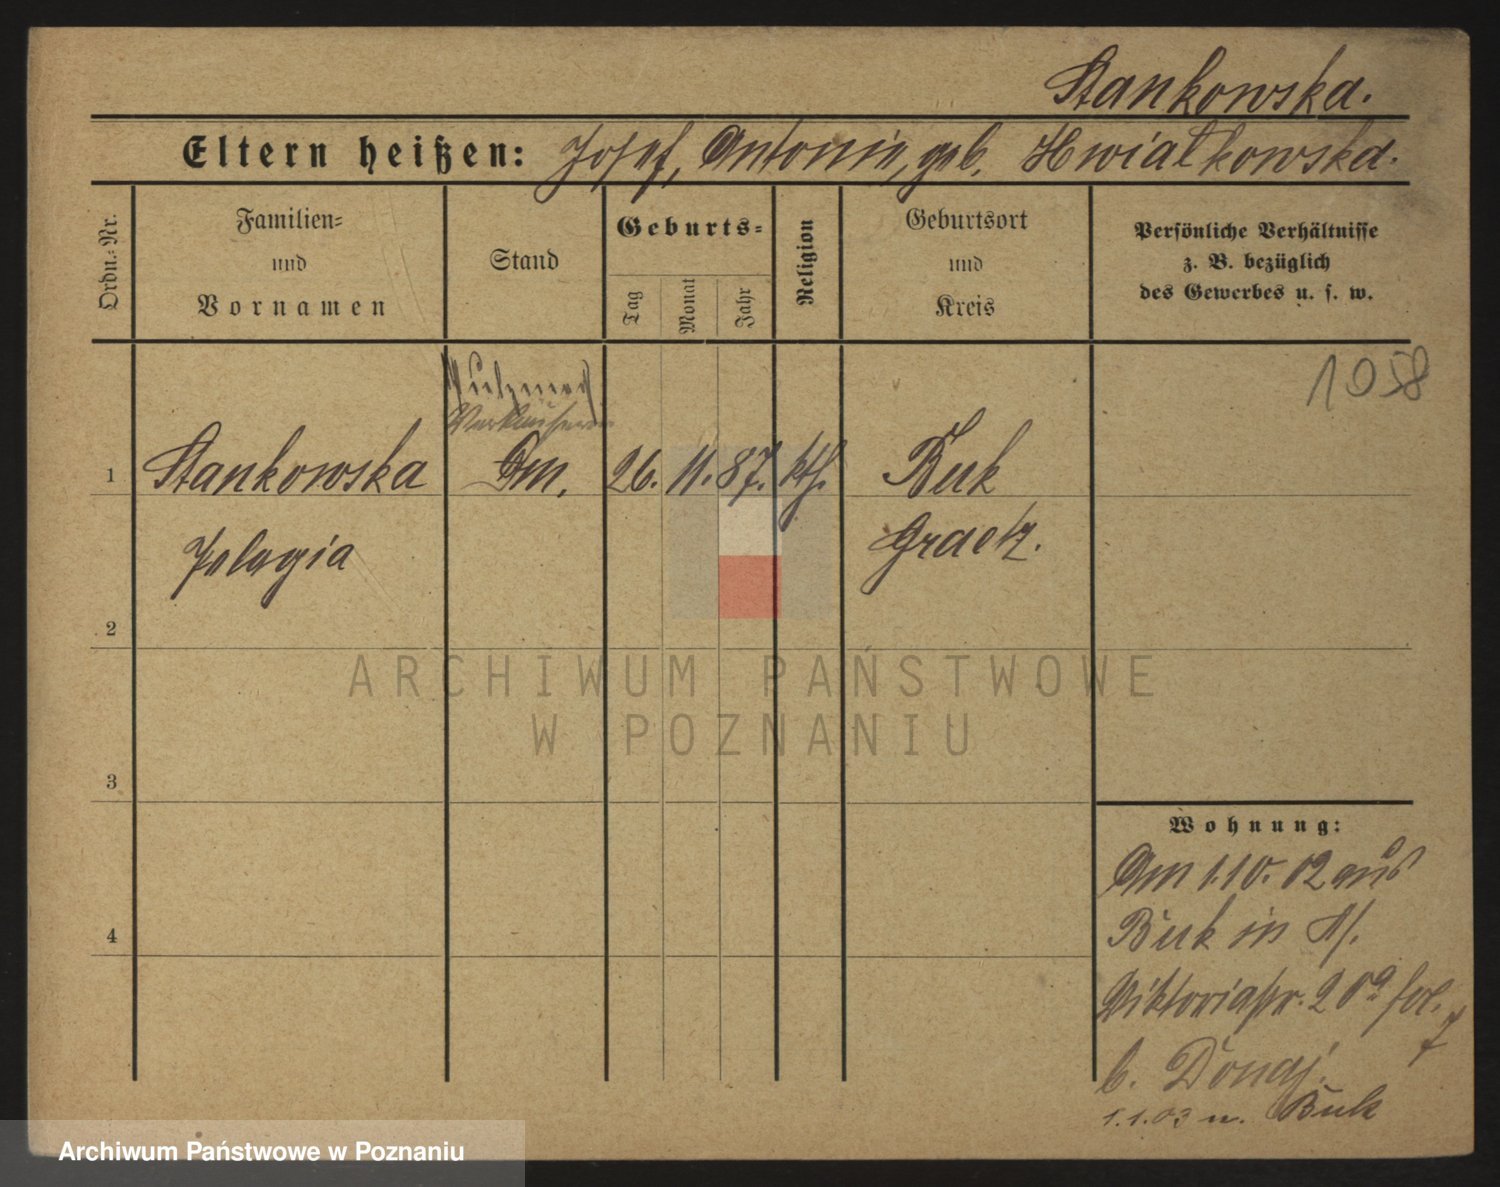 Stankowska.
Eltern heißen: Josef, Antonie, geb. Kwiatkowska.
Ordn.-Nr.
Familien-
und
Vornamen
Stand
Geburts-
Tag
Monat
Jahr
Religion
Geburtsort
und
Kreis
Persönliche Verhältnisse
z. B. bezüglich
des Gewerbes u. s. w.
1058
Verkäuferin
1 Stankowska 26. 11. 87. kth. Buk
Pelagia Graetz.
2
3
4
Wohnung:
Am 1.10.02 aus
Buk in
Viktoriastr. 20a
b. Donaj
1.1.03 n. Buk
ARCHIWUM PAŃSTWOWE
W POZNANIU
Archiwum Państwowe w Poznaniu